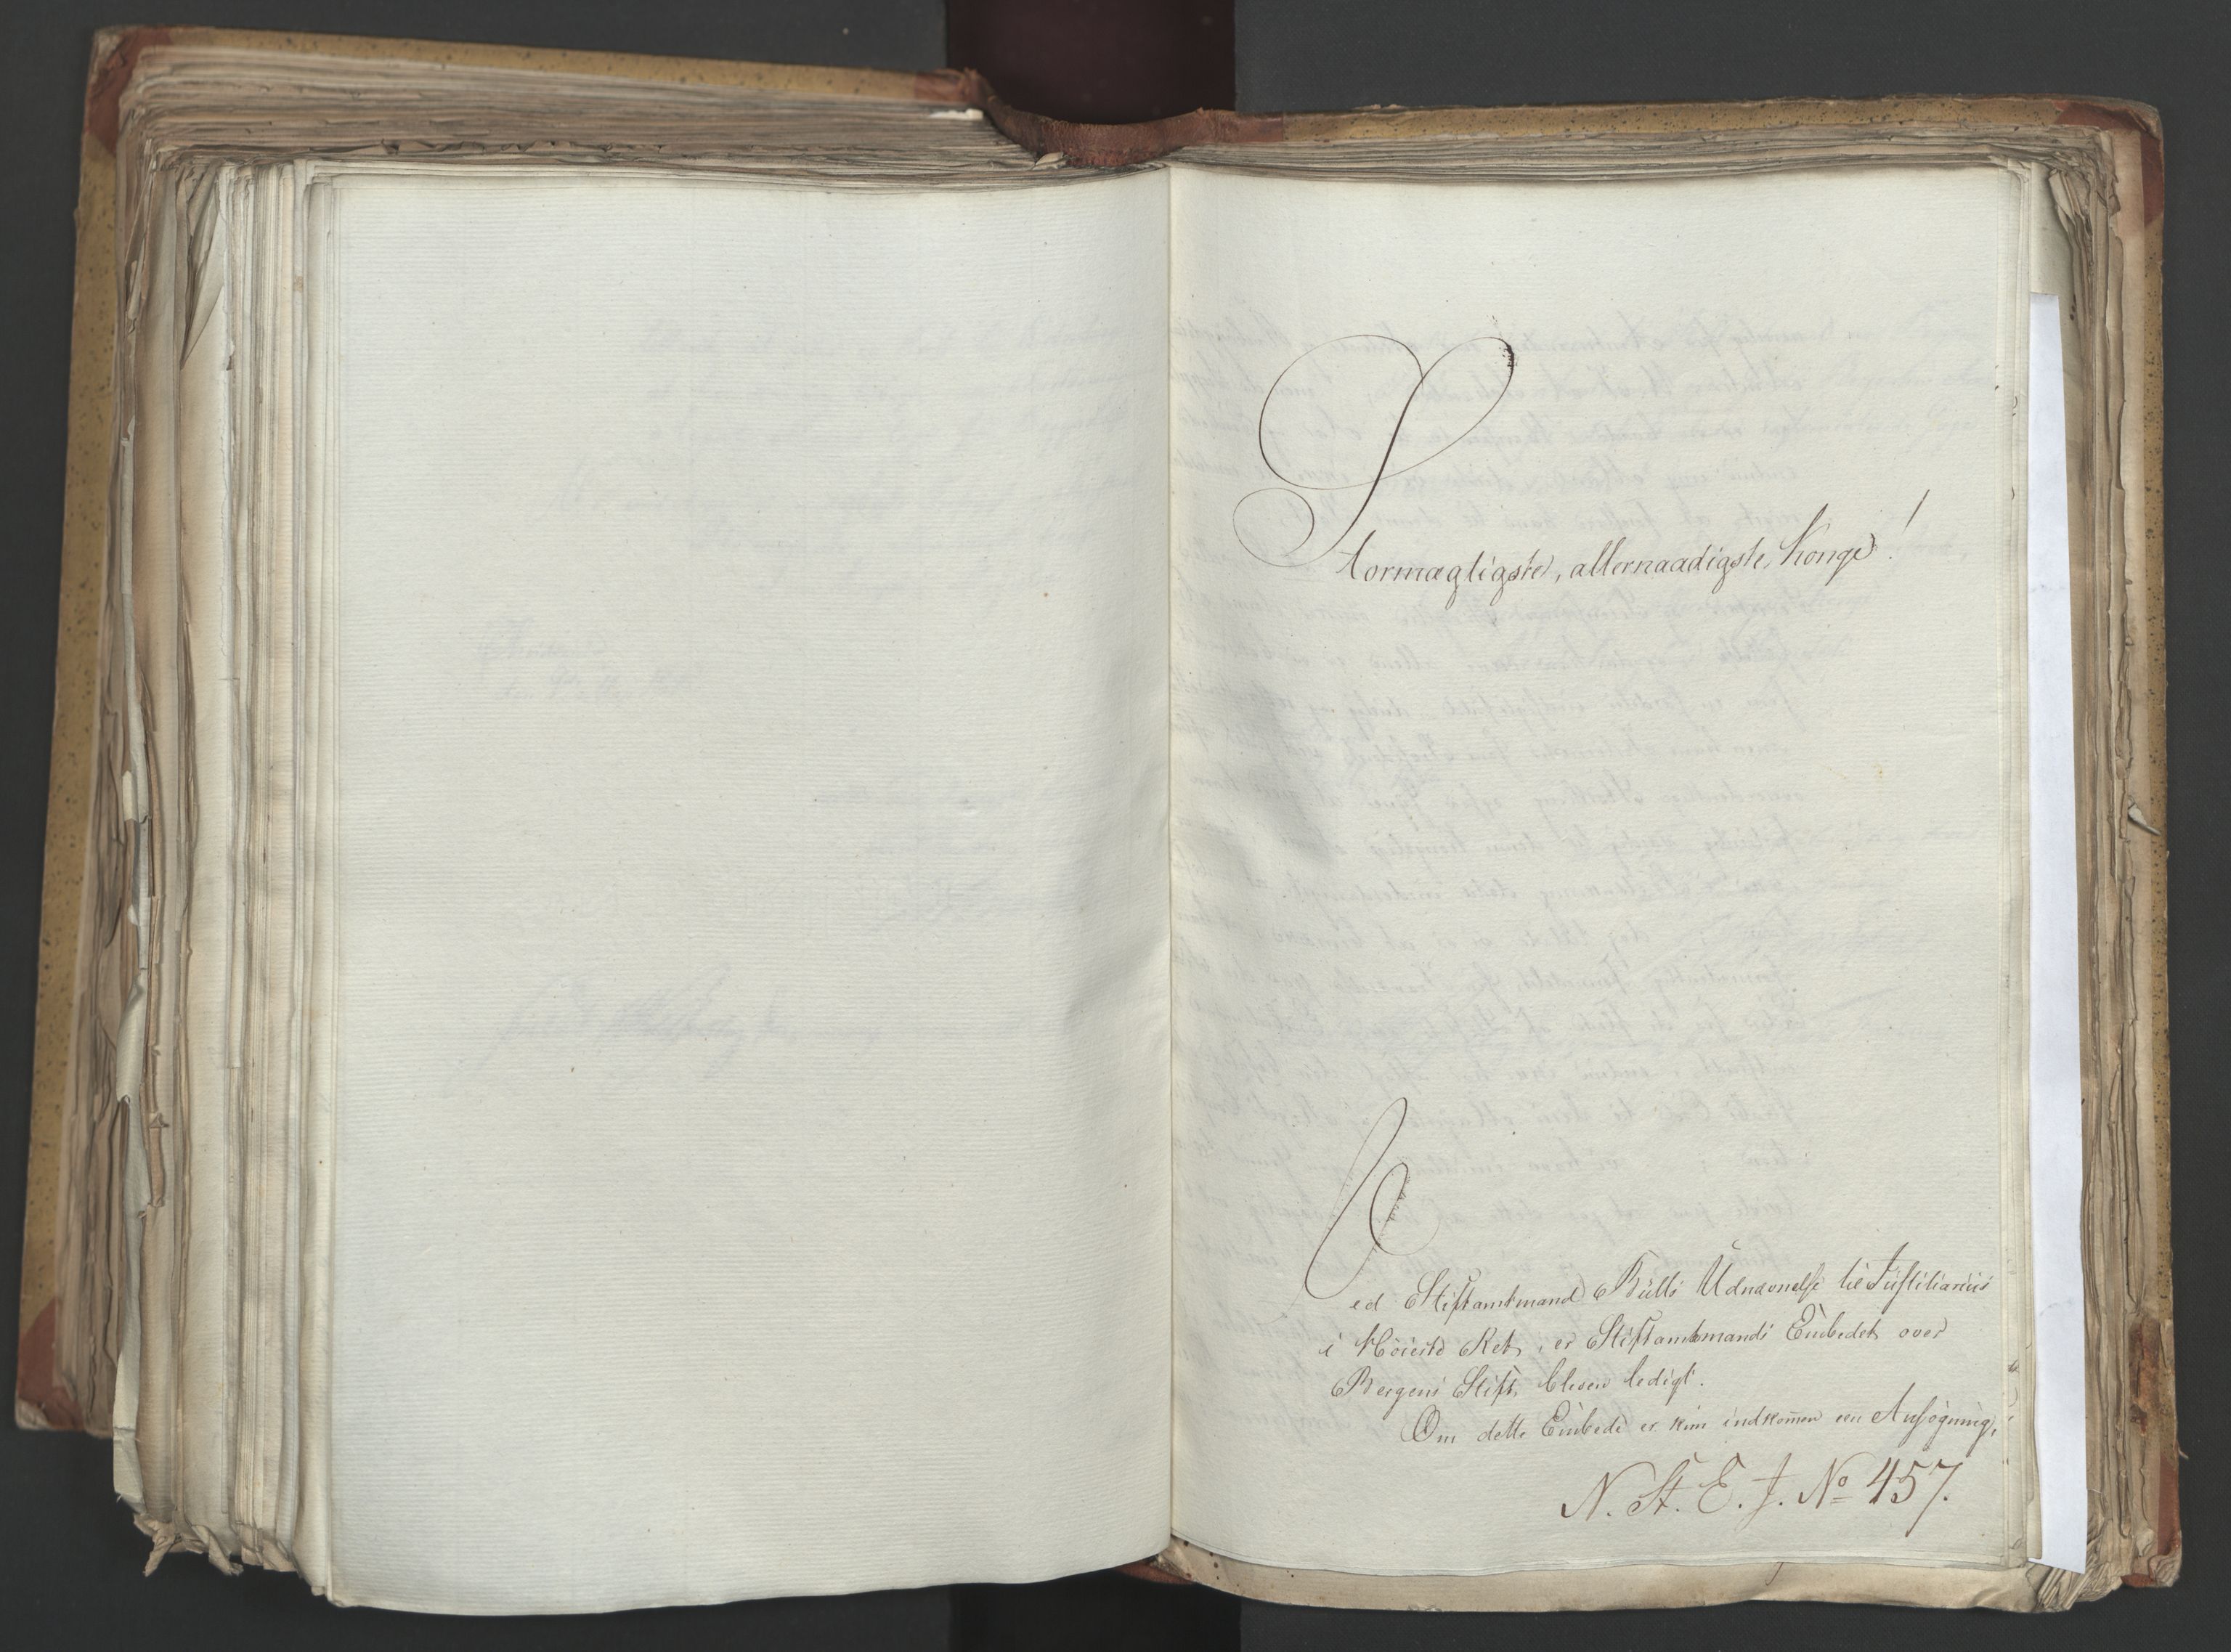 Stormægtigste, allernaadigste Konge!
Ved Stiftamtmand Bülls Udnævnelse til Justitiarius
i Höieste Ret, er Stiftamtmands Embedet over
Bergens Stift, bleven ledigt.
Om dette Embede er kun indkom̄en een Ansøgning,
N. St. E. J. No 457.